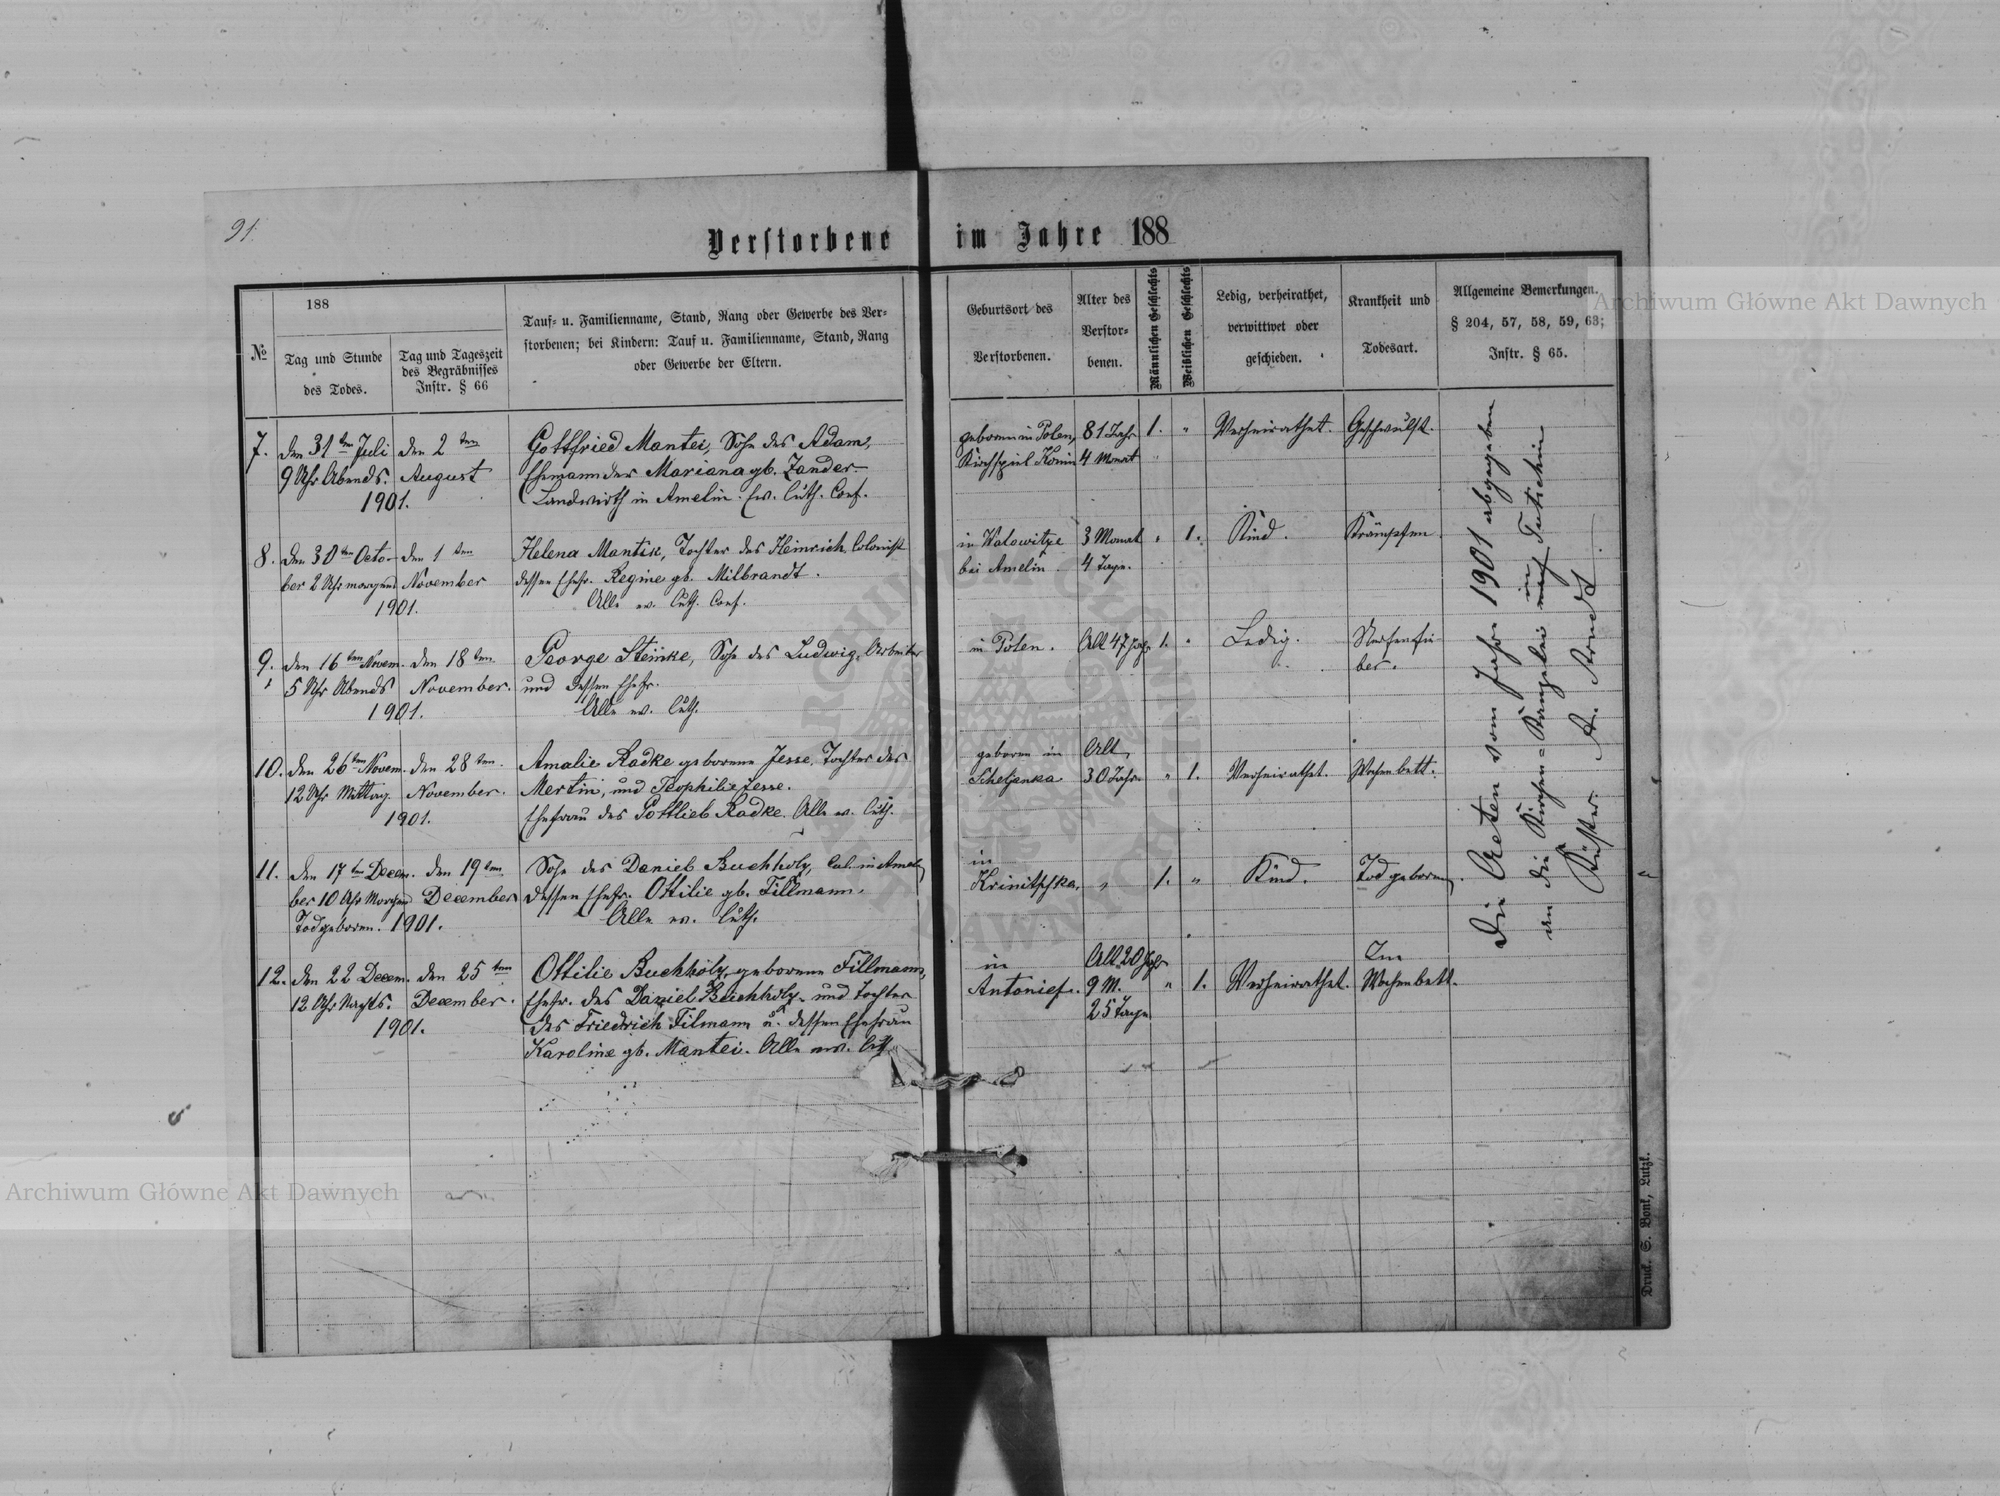 91.
Verstorbene im Jahre 188
№
188
Tag und Stunde
des Todes.
Tag und Tageszeit
des Begräbnisses
Instr. § 66
Tauf- u. Familienname, Stand, Rang oder Gewerbe des Ver-
storbenen; bei Kindern: Tauf u. Familienname, Stand, Rang
oder Gewerbe der Eltern.
Geburtsort des
Verstorbenen.
Alter des
Verstor-
benen.
Männlichen Geschlechts
Weiblichen Geschlechts
Ledig, verheirathet,
verwittwet oder
geschieden.
Krankheit und
Todesart.
Allgemeine Bemerkungen.
§ 204, 57, 58, 59, 63;
Instr. § 65.
7. den 31ten Juli den 2ten Gottfried Mantei, Sohn des Adam, geboren in Polen, 81 Jahr 1. " Verheirathet. Geschwülst.
9 Uhr Abends. August Ehemann der Mariana gb. Zander. Kirchspiel Konin 4 Monat
1901. Landwirth in Amelin. Ev. Luth. Conf.
8. den 30ten Octo- den 1ten Helena Mantik, Tochter des Heinrich, Colonist in Wolowitze 3 Monat " 1. Kind. Krämpfen
ber 2 Uhr morgens November dessen Ehefr. Regine gb. Milbrandt. bei Amelin. 4 Tage.
1901. Alle ev. Luth. Conf.
9. den 16ten Novem. den 18ten George Steinke, Sohn des Ludwig, Arbeiter in Polen. Alt 47 Jahr 1. " Ledig. Nervenfie-
5 Uhr Abends November. und dessen Ehefr. ber.
1901. Alle ev. Luth.
10. den 26ten Novem. den 28ten. Amalie Radke geborene Jesse, Tochter des geboren in Alt
12 Uhr Mittag. November. Mertin, und Teophilie Jesse. Scheljanka 30 Jahr. " 1. Verheirathet. Wochenbett.
1901. Ehefrau des Gottlieb Radke. Alle ev. Luth.
11. den 17te Decem. den 19ten. Sohn des Daniel Buchholz, Col. in Amelin in
ber 10 Uhr Morgens December dessen Ehefr. Ottilie gb. Tillmann. Krinitschka. " 1. " Kind. Todgeboren.
Todgeboren. 1901. Alle ev. Luth.
12. den 22 Decem. den 25ten Ottilie Buchholz, geborene Tillmann, in Alt 20 Jahr Im
12 Uhr Nachts. December. Ehefr. des Daniel Buchholz, und Tochter Antonief. 9 M. " 1. Verheirathet. Wochenbett.
1901. des Friedrich Tilmann u. dessen Ehefrau 25 Tage
Karoline gb. Mantei. Alle ev. Luth
Die Acten vom Jahr 1901 abgegeben
an die Kirchen-Kanzelei in Tutschin
Küster. A. Arndt
Druck. S. Bonk, Lutzk.
Archiwum Główne Akt Dawnych
Archiwum Główne Akt Dawnych